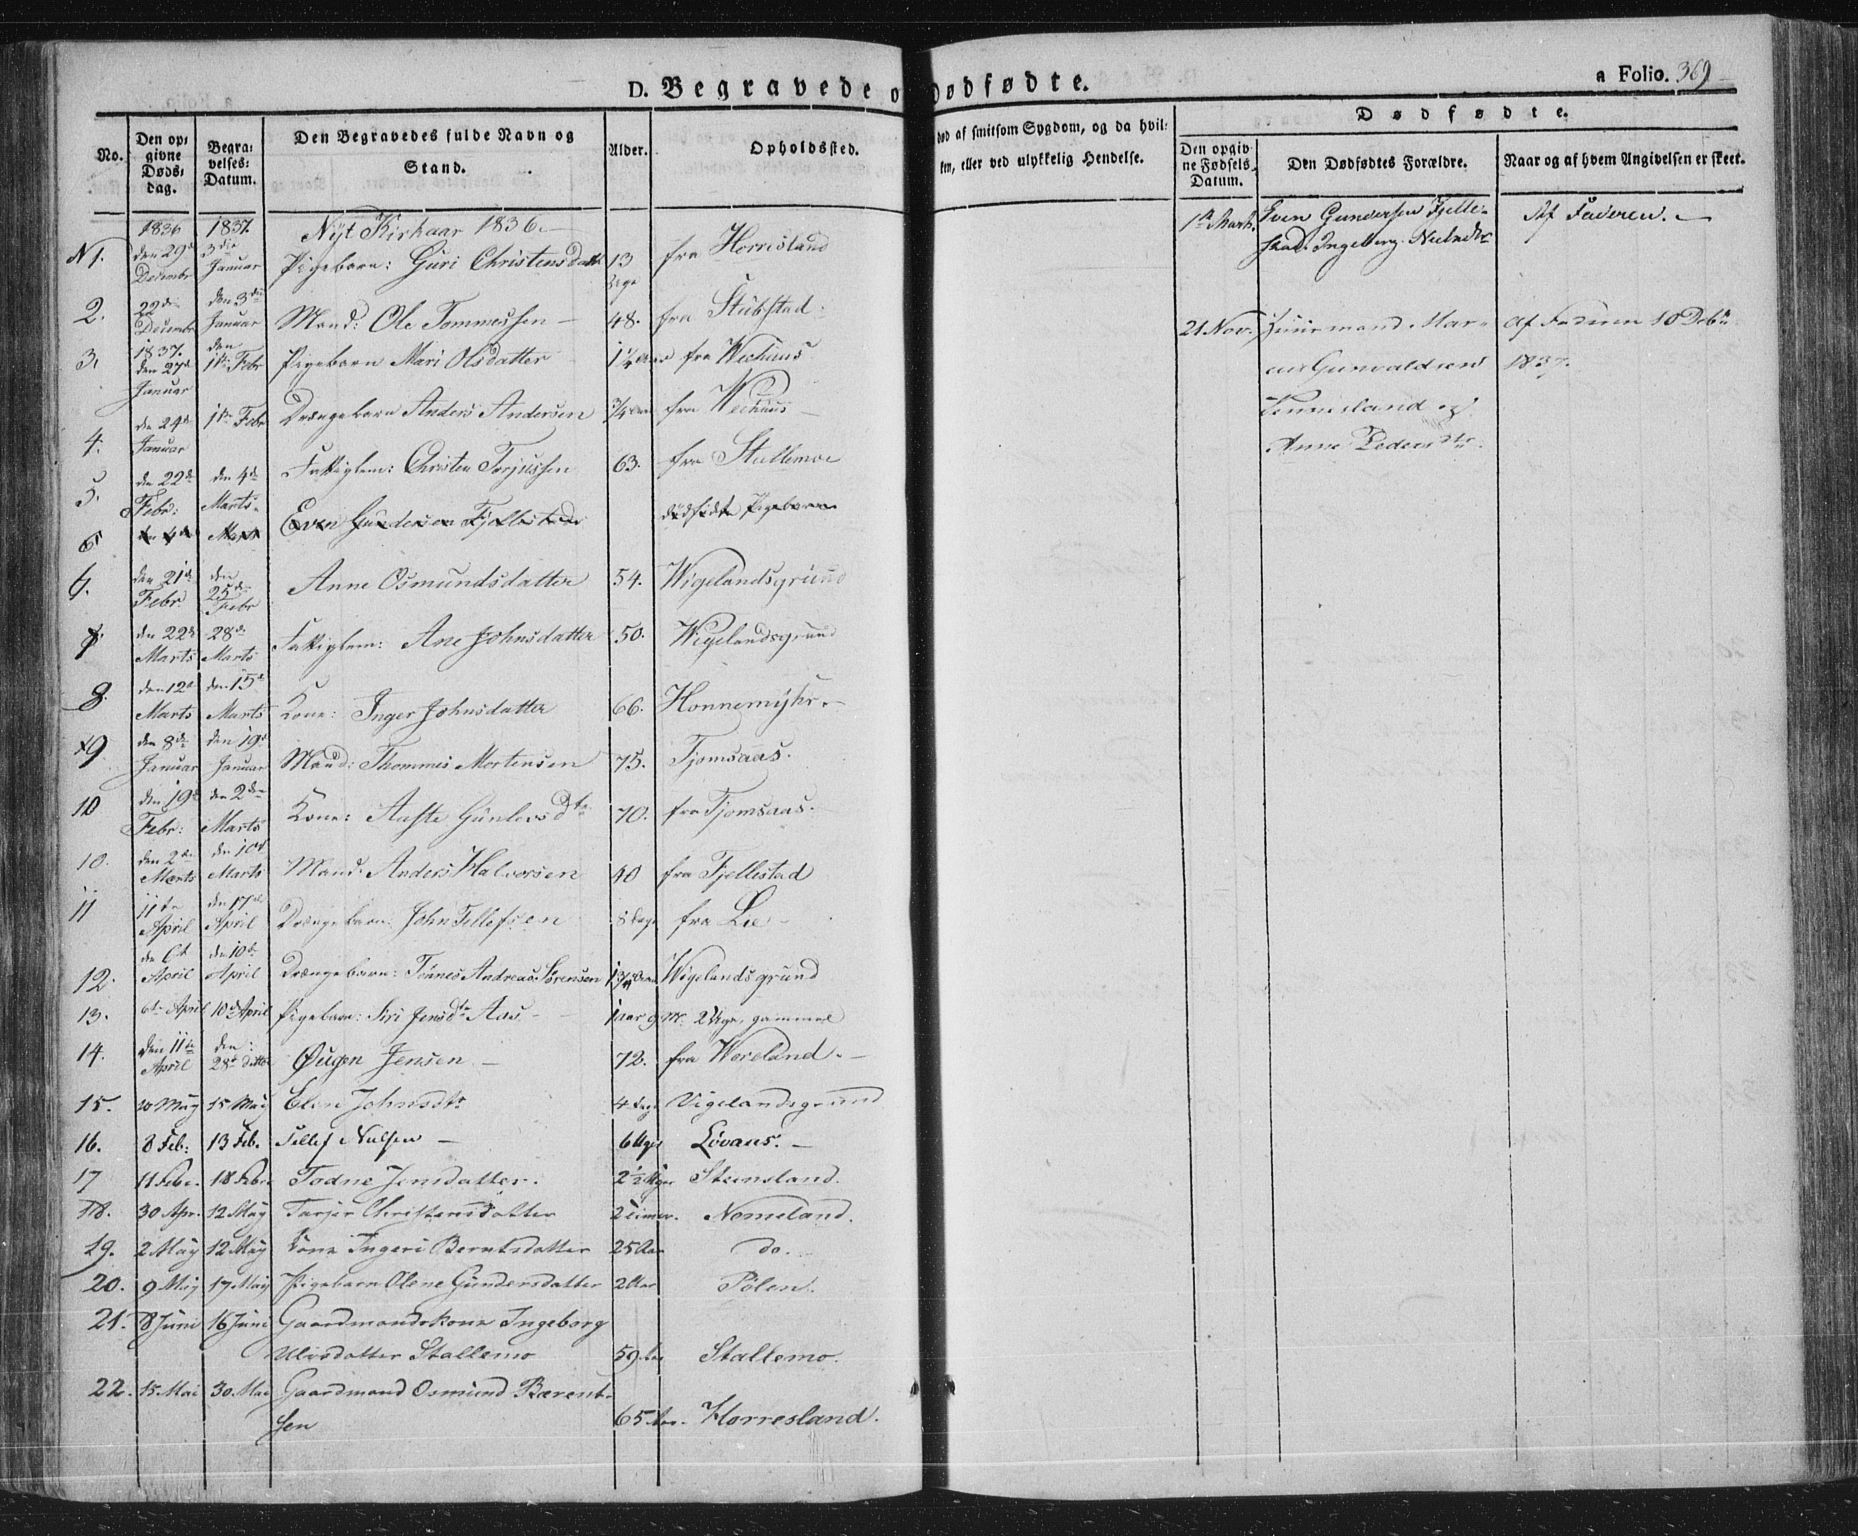 D. Begravede o
Dødfødte.
a Folio. 369
No.
Den op-
givne
Døds-
dag.
Begra-
velses-
Datum.
Den Begravedes fulde Navn og
Stand.
Alder.
Opholdssted.
død af smitsom Sygdom, og da hvil-
ken, eller ved ulykkelig Hendelse.
Dødfødte.
Den opgiv-
ne Fødsels
Datum.
Den Dødfødtes Forældre.
Naar og af hvem Angivelsen er skeet.
1836 1837 Nyt Kirkaar 1836.
N 1. den 29de Decembr 3die Januar Pigebarn: Guri Christensdatter 13 Uge fra Horresland
2. 22de Decembr den 3die Januar Mand: Ole Tommessen 48. fra Stubstad.
3. 1837. den 27de Januar den 1ste Febr Pigebarn Mari Olsdatter 1 1/4 Aar fra Wehuus
4. den 24de Januar 1ste Febr Drængebarn Anders Andersen 3/4 Aar fra Wehuus
5. den 22de Febr: den 4de Marts Fattiglem: Christen Torjussen 63. fra Stallemoe
6 den 4de Marts Even Gundersen Fjellestad dødfødt Pigebarn
6. den 21de Febr den 25de Febr Anne Osmundsdatter 54. Wigelandsgrund
7. den 22de Marts 28de Marts Fattiglem: Ane Johnsdatter 50. Wigelandsgrund
8. den 12te Marts den 15de Marts Kone: Inger Johnsdatter 66. Honnemyhr.
9 den 8de Januar den 19de Januar Mand: Thommes Mortensen 75. Tjomsaas.
10 den 19de Febr: den 2den Marts Kone: Aaste Gunlevsdtr 70. fra Tjomsaas.
10. den 2de Marts den 10de Marts Mand: Anders Halvorsen 40 fra Fjellestad
11 11te April den 17de April Drængebarn: John Tellefsen 8 Dage fra Lie
12. de 6te April den 10de April Drængebarn: Tønnes Andreas Sørensen 1 3/4 Aar Wigelandsgrund
13. 6te April 10de April Pigebarn: Siri Jensdtr Aas 1 aar 9 M: 2 Uge. gammel
14. den 11te April den 28de ditto Øugen Jensen 72. fra Woreland.
15. 10 May 15 May Elen Johnsdtr 4 Dage Vigelandsgrund
16. 8 Feb: 13 Feb. Tellef Nielsen 6 Uger Løvaas.
17 11 Febr. 18 Febr Todne Jensdatter. 2 1/2 Uger Steensland.
18. 30 Apr. 12 May Tarjer Christensdatter 2 Timer. Nomeland.
19. 2 May 12 May Kone Ingeri Berntsdatter 25 Aar do.
20. 9 May 17 May Pigebarn Olene Gundersdatter 2 Aar Pølen.
21. 8 Juni 16 Juni Gaardmandskone Ingeborg
Ulvsdatter Stallemo 59 Aar Stallemo.
22. 15 Mai 30 Mai Gaardmand Osmund Bærent-
sen 65 Aar. Horresland.
1ste Marts. Even Gundersen Fjelle-
stad. Ingeborg Nielsdtr
Af Faderen.
21 Nov. Huusmand Mar-
cus Gunvaldsen
Tonnesland og
Anne Pedersdtr.
Af Faderen 10 Debr
1837.